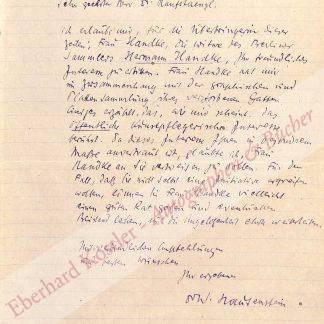 sehr geehrter Herr Dr. Hanfstaengl.
ich erlaube mir, für die Überbringerin dieser
Zeilen, Frau Handke, die Witwe des Berliner
Sammlers Hermann Handke, Ihr freundliches
Interesse zu erbitten. Frau Handke hat mir
im Zusammenhang mit der graphischen und
Plakatsammlung ihres verstorbenen Gatten
einiges erzählt, das, wie mir scheint, das
öffentliche kunstpflegerische Interesse
berührt. Da dieses Interesse Ihnen in besonderem
Maße anvertraut ist, glaubte ich, Frau
Handke an Sie verweisen zu sollen. Für den
Fall, daß Sie nicht selbst eine Initiative ergreifen
wollen, können Sie Frau Handke vielleicht
einen guten Rat geben und eventuellen
Beistand leihen, um die Angelegenheit etwas
Mit freundlichen Empfehlungen
und besten Wünschen
Ihr ergebener
W. Hausenstein.
Eberhard Köstler - Autographen & Bücher